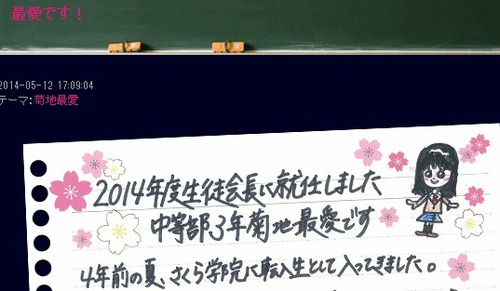 最愛です！
2014-05-12 17:09:04
テーマ：菊地最愛
2014年度生徒会長に就任しました
中等部3年菊地最愛です
4年前の夏、さくら学院に転入生として入ってきました。